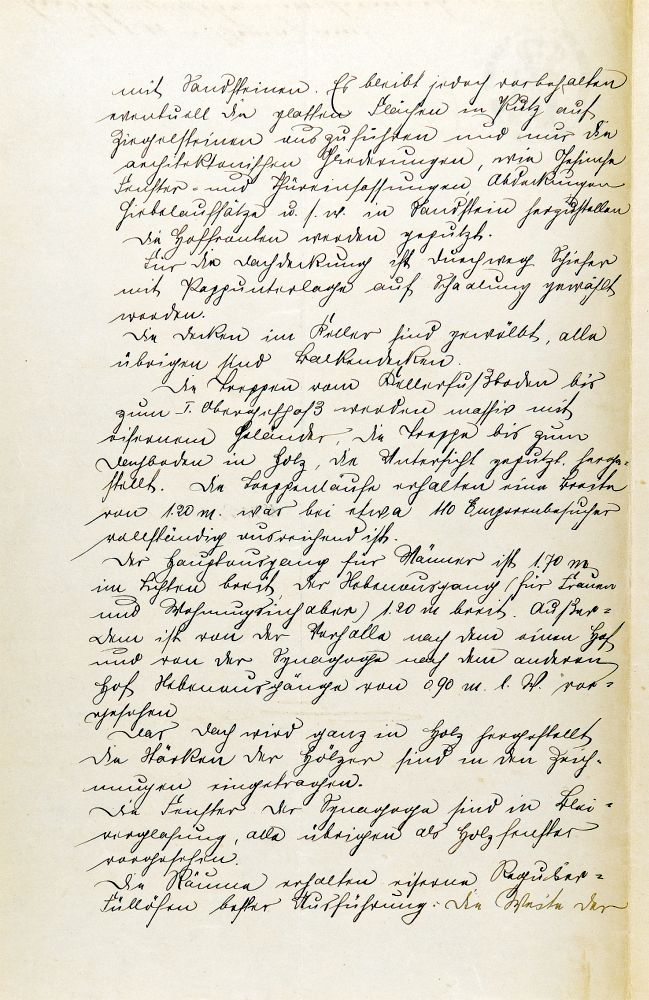 mit Sandsteinen. Es bleibt jedoch vorbehalten
eventuell die glatten Flächen in Putz auf
Ziegelsteinen auszuführen und nur die
architektonischen Gliederungen, wie Gesimse
Fenster- und Thüreinfassungen, Abdeckungen
Giebelaufsätze u. s. w. in Sandstein herzustellen
Die Hoffronten werden geputzt.
Für die Dachdeckung ist durchweg Schiefer
mit Pappunterlage auf Schaalung gewählt
worden.
Die Decken im Keller sind gewölbt, alle
übrigen sind Balkendecken.
Die Treppen vom Kellerfußboden bis
zum I. Obergeschoß werden massiv mit
eisernem Geländer, die Treppe bis zum
Dachboden in Holz, die Untersicht geputzt, herge=
stellt. Die Treppenläufe erhalten eine Breite
von 1.20 m. was bei etwa 110 Emporenbesucher
vollständig ausreichend ist.
Der Hauptausgang für Männer ist 1.70 m
im Lichten breit, der Nebenausgang (für Frauen
und Wohnungsinhaber) 1.20 m breit. Außer=
dem ist von der Vorhalle nach dem einen Hof
und von der Synagoge nach dem anderen
Hof Nebenausgänge von 0.90 m. l. W. vor=
gesehen
Das Dach wird ganz in Holz hergestellt
die Stärken der Hölzer sind in den Zeich-
nungen eingetragen.
Die Fenster der Synagoge sind in Blei=
verglasung, alle übrigen als Holzfenster
vorgesehen.
Die Räume erhalten eiserne Regulier=
Füllöfen bester Ausführung. Die Weite der